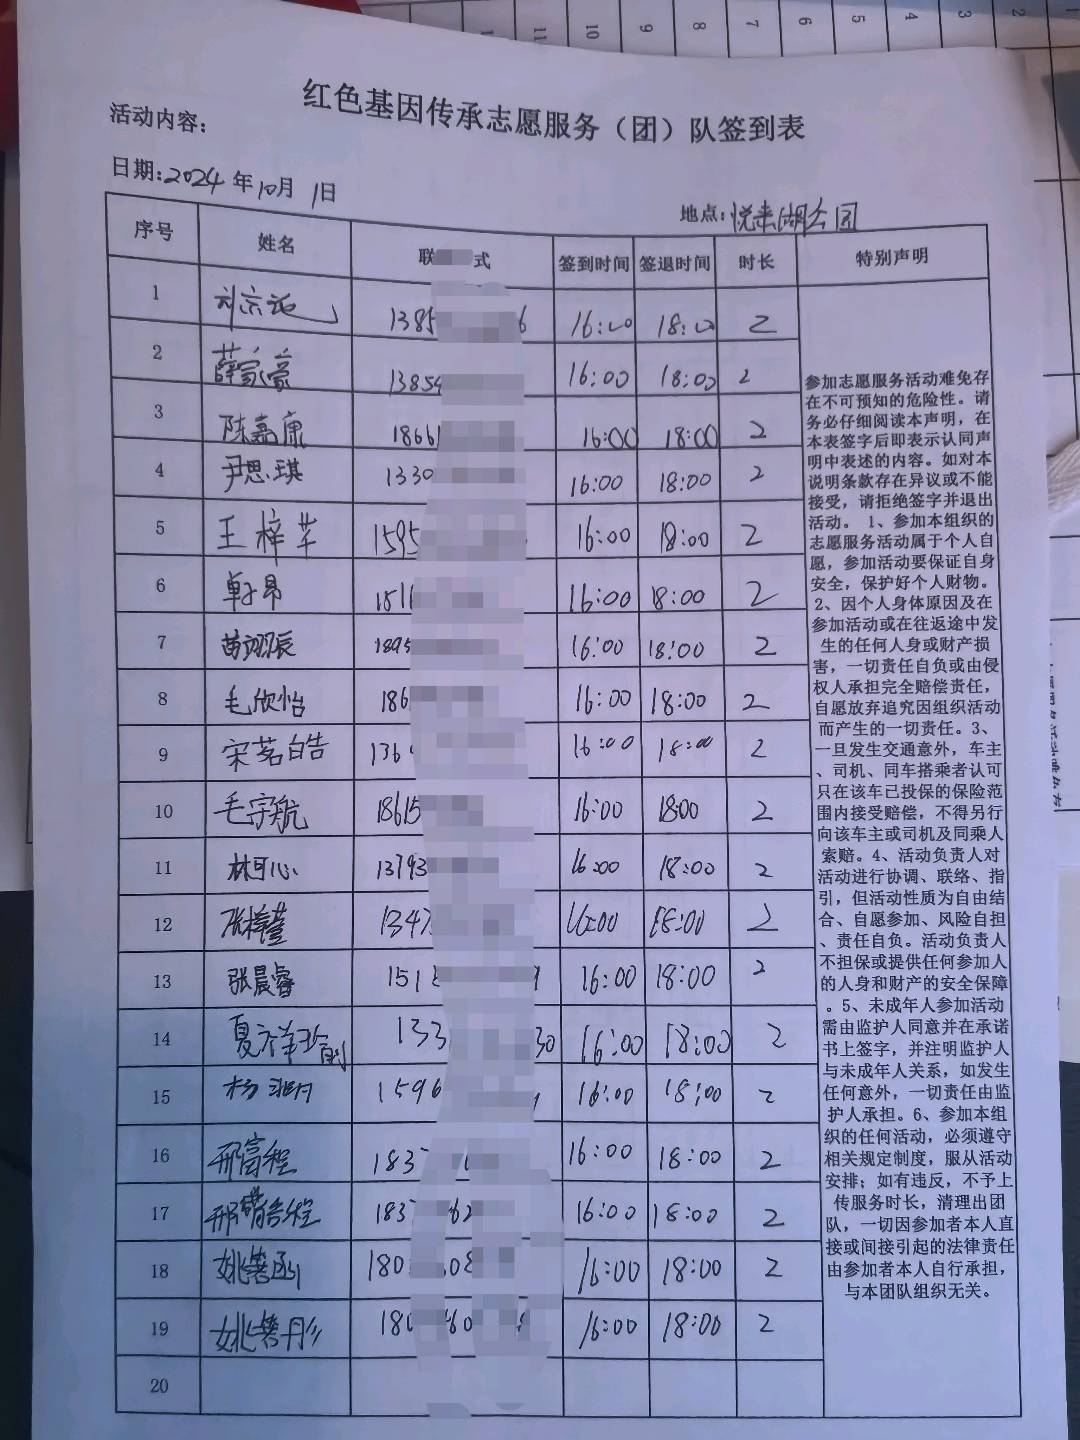 12 11 10 9 8 7 6 5 4 3 2
红色基因传承志愿服务（团）队签到表
活动内容：
日期:2024年10月1日
地点:悦来湖公园
序号 姓名 联 式 签到时间 签退时间 时长 特别声明
1 1385 6 16:00 18:00 2
2 薛家豪 13854 16:00 18:00 2
3 陈嘉康 1866 16:00 18:00 2
4 尹思琪 1330 16:00 18:00 2
5 王梓芊 1595 16:00 18:00 2
6 1516 16:00 18:00 2
7 苗翊辰 1895 16:00 18:00 2
8 毛欣怡 186 16:00 18:00 2
9 宋茗皓 136 16:00 18:00 2
10 毛宇航 18615 16:00 1800 2
11 林可心 13793 16:00 18:00 2
12 1347 16:00 18:00 2
13 张晨睿 151 16:00 18:00 2
14 133 30 16:00 18:00 2
15 1596 16:00 18:00 2
16 邢富程 183 16:00 18:00 2
17 183 62 16:00 18:00 2
18 180 08 16:00 18:00 2
19 180 60 16:00 18:00 2
20
参加志愿服务活动难免存
在不可预知的危险性。请
务必仔细阅读本声明，在
本表签字后即表示认同声
明中表述的内容。如对本
说明条款存在异议或不能
接受，请拒绝签字并退出
活动。 1、参加本组织的
志愿服务活动属于个人自
愿，参加活动要保证自身
安全，保护好个人财物。
2、因个人身体原因及在
参加活动或在往返途中发
生的任何人身或财产损
害，一切责任自负或由侵
权人承担完全赔偿责任，
自愿放弃追究因组织活动
而产生的一切责任。3、
一旦发生交通意外，车主
、司机、同车搭乘者认可
只在该车已投保的保险范
围内接受赔偿，不得另行
向该车主或司机及同乘人
索赔。4、活动负责人对
活动进行协调、联络、指
引，但活动性质为自由结
合、自愿参加、风险自担
、责任自负。活动负责人
不担保或提供任何参加人
的人身和财产的安全保障
。5、未成年人参加活动
需由监护人同意并在承诺
书上签字，并注明监护人
与未成年人关系，如发生
任何意外，一切责任由监
护人承担。6、参加本组
织的任何活动，必须遵守
相关规定制度，服从活动
安排；如有违反，不予上
传服务时长，清理出团
队，一切因参加者本人直
接或间接引起的法律责任
由参加者本人自行承担，
与本团队组织无关。